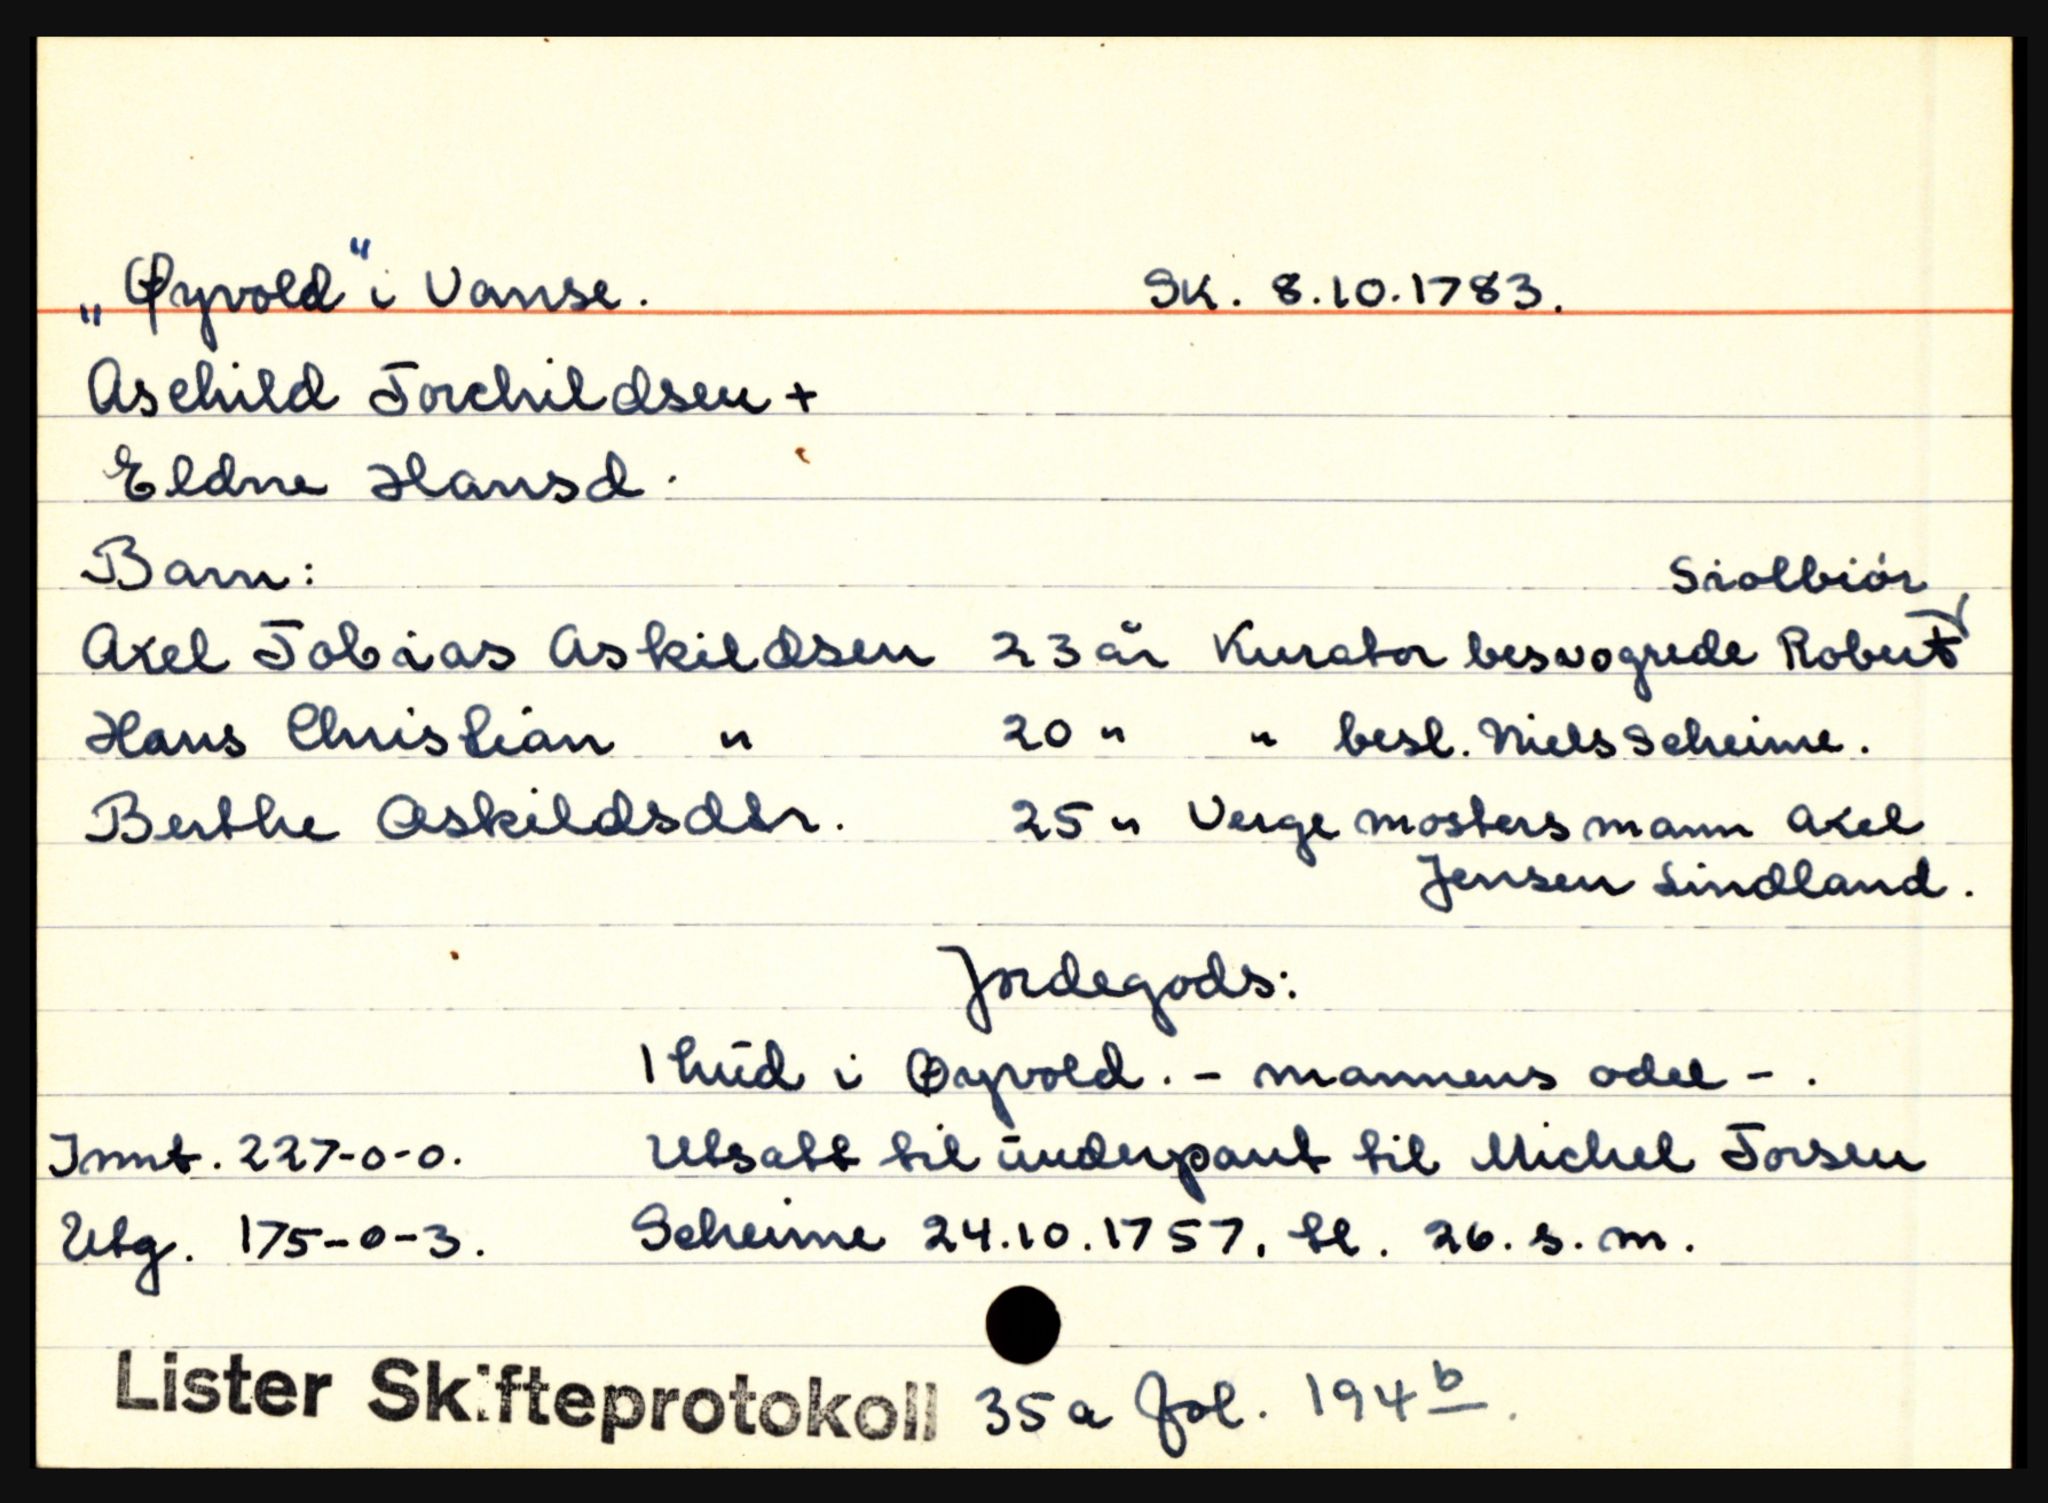 „Øyvold" i Vanse. Sk. 8.10.1783.
Aschild Torchildsen +
Eldne Hansd.
Barn:
Siolbiör
Axel Tobias Askildsen 23 år Kurator besvogrede Robert
Hans Christian " 20 " " besl. Niels Scheime.
Berthe Askildsdtr. 25 " Verge mosters mann Axel
Jensen Lindland.
Jordegods:
1 hud i Øyvold. - mannens odel - .
Innt. 227-0-0. Utsatt til underpant til Michel Torsen
Utg. 175-0-3. Scheime 24.10.1757, tl. 26. s. m.
Lister Skifteprotokoll 35a fol. 194 b.